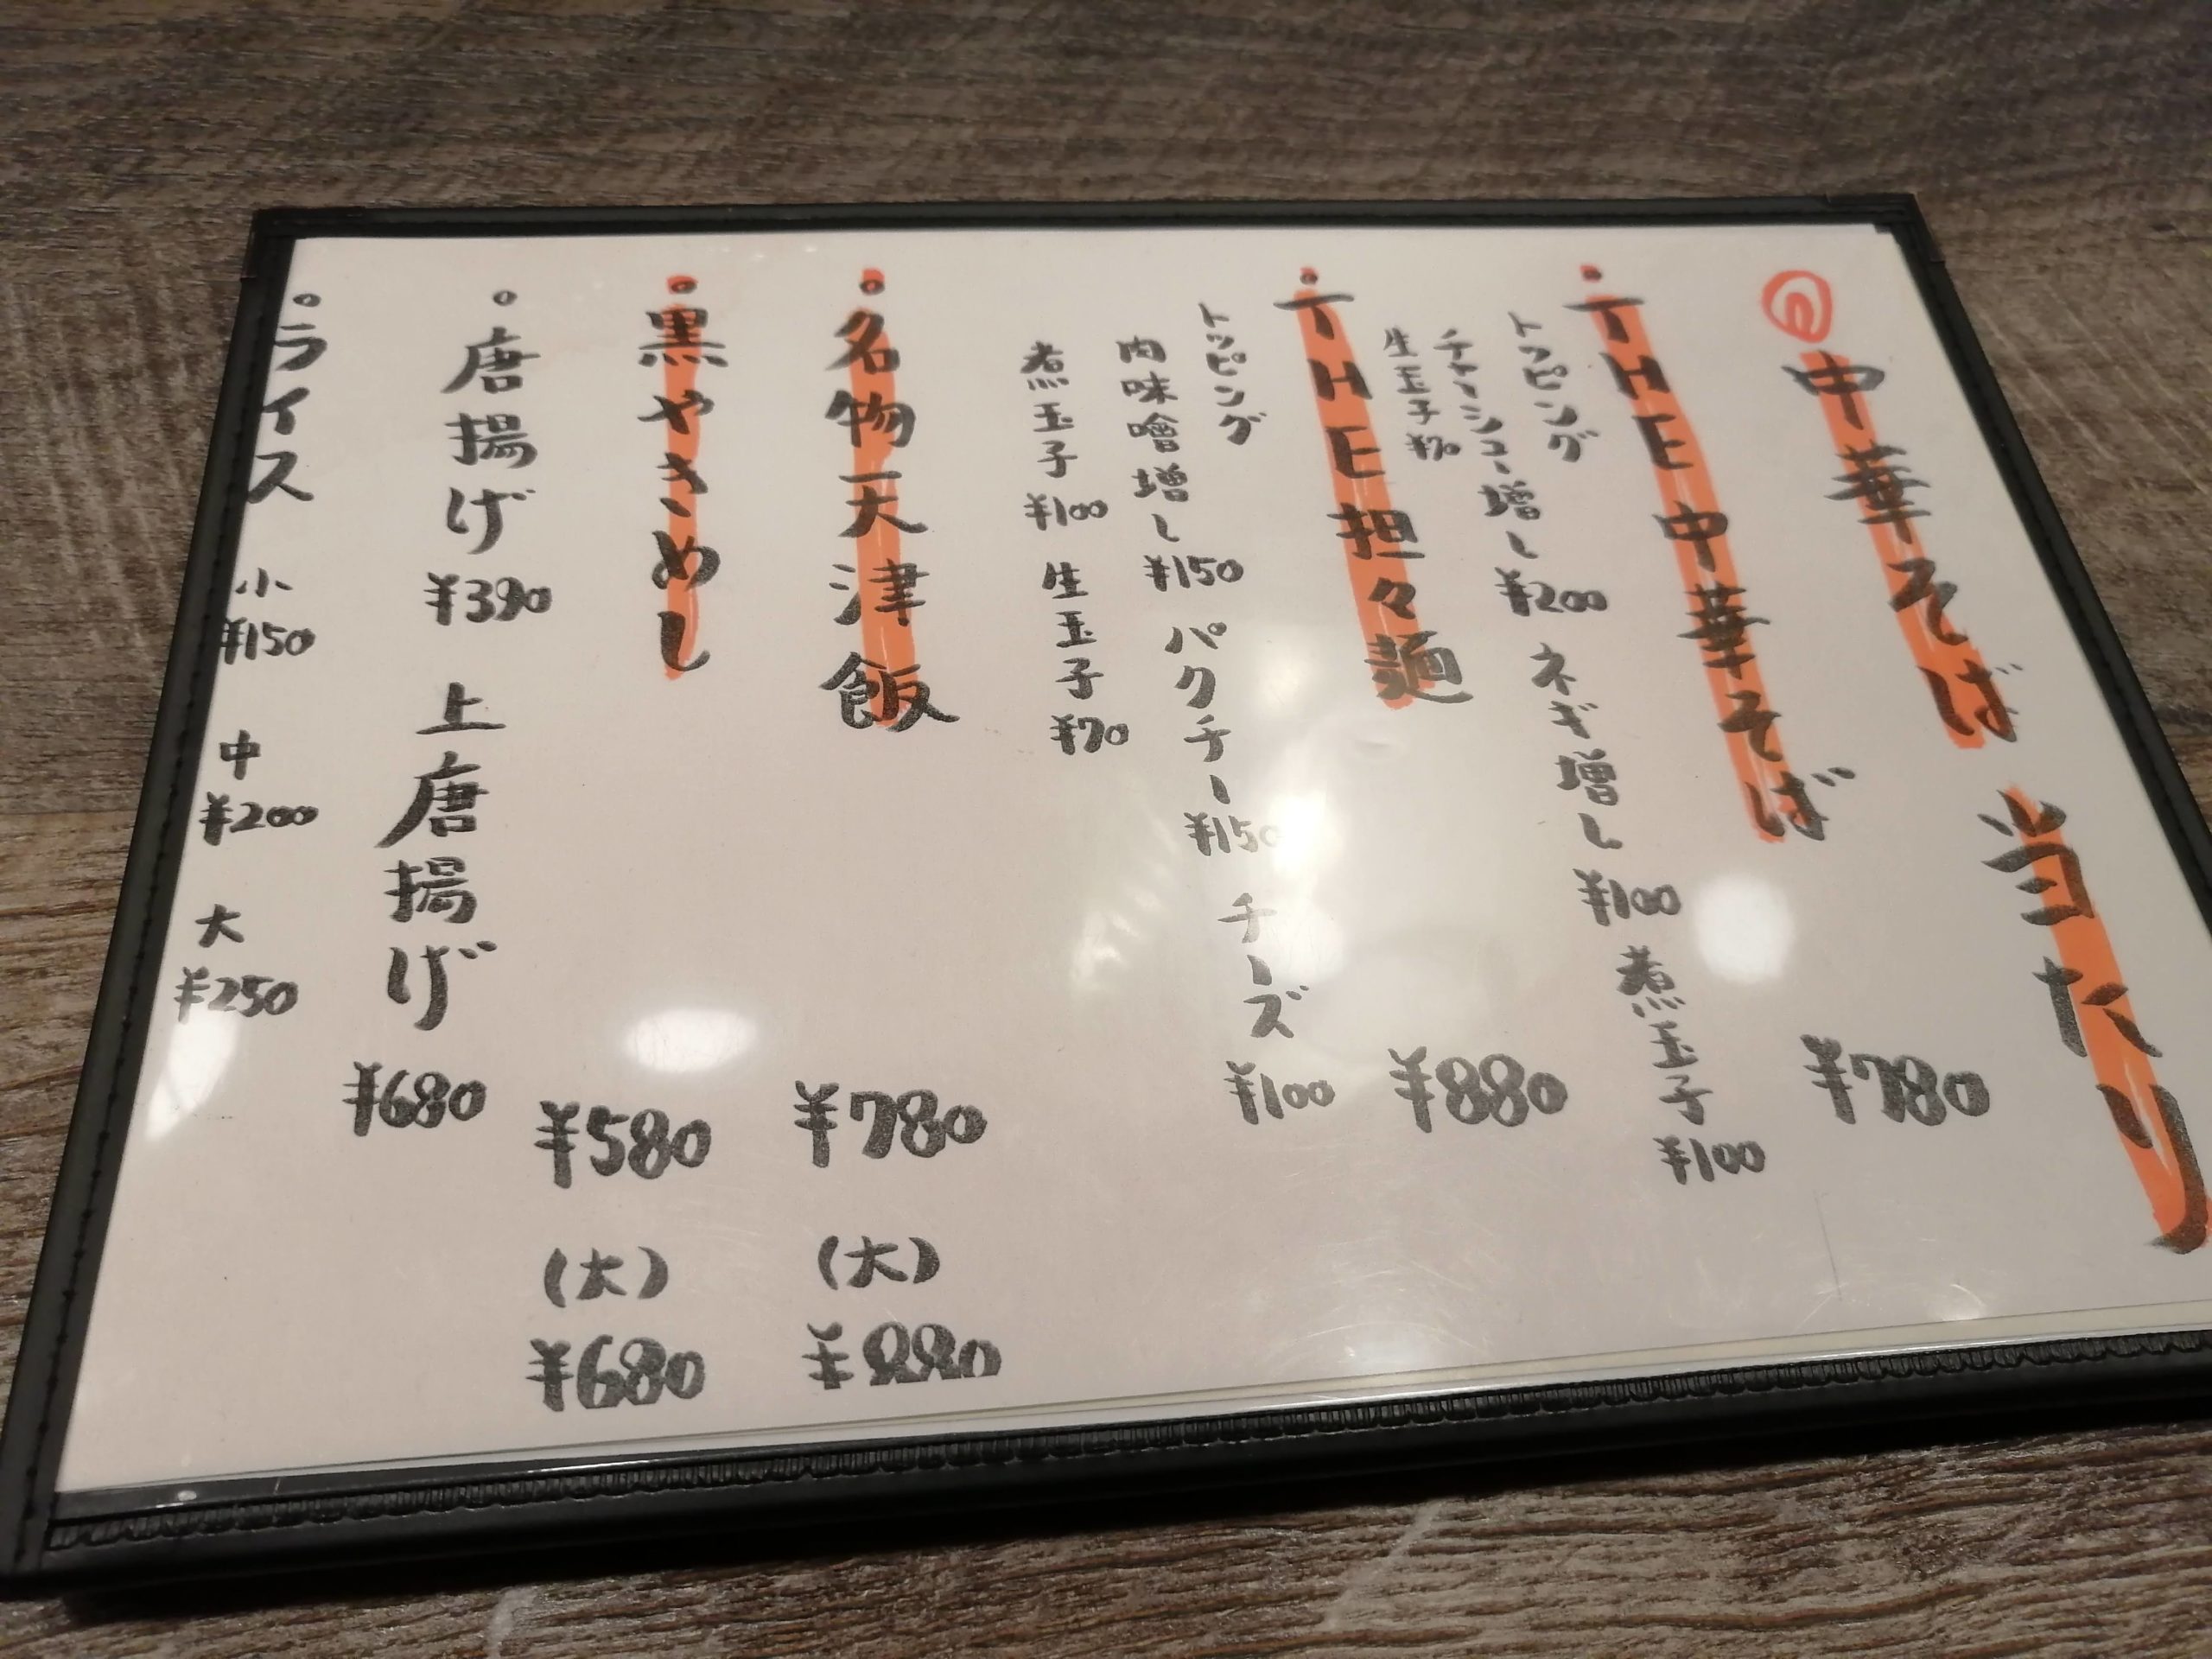 中華そば 当たり
THE中華そば ¥780
トッピング
チャーシュー増し ¥200 ネギ増し ¥100 煮玉子 ¥100
生玉子 ¥70
THE担々麺 ¥880
トッピング
肉味噌増し ¥150 パクチー ¥150 チーズ ¥100
煮玉子 ¥100 生玉子 ¥70
名物天津飯 ¥780 (大) ¥880
黒やきめし ¥580 (大) ¥680
唐揚げ ¥390 上唐揚げ ¥680
ライス 小 ¥150 中 ¥200 大 ¥250